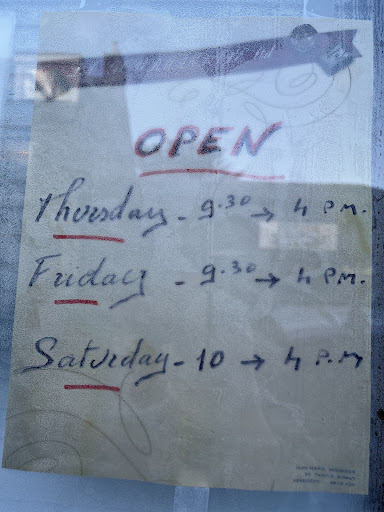 OPEN
Thursday - 9.30 → 4 P.M.
Friday - 9.30 → 4 P.M.
Saturday - 10 → 4 P.M